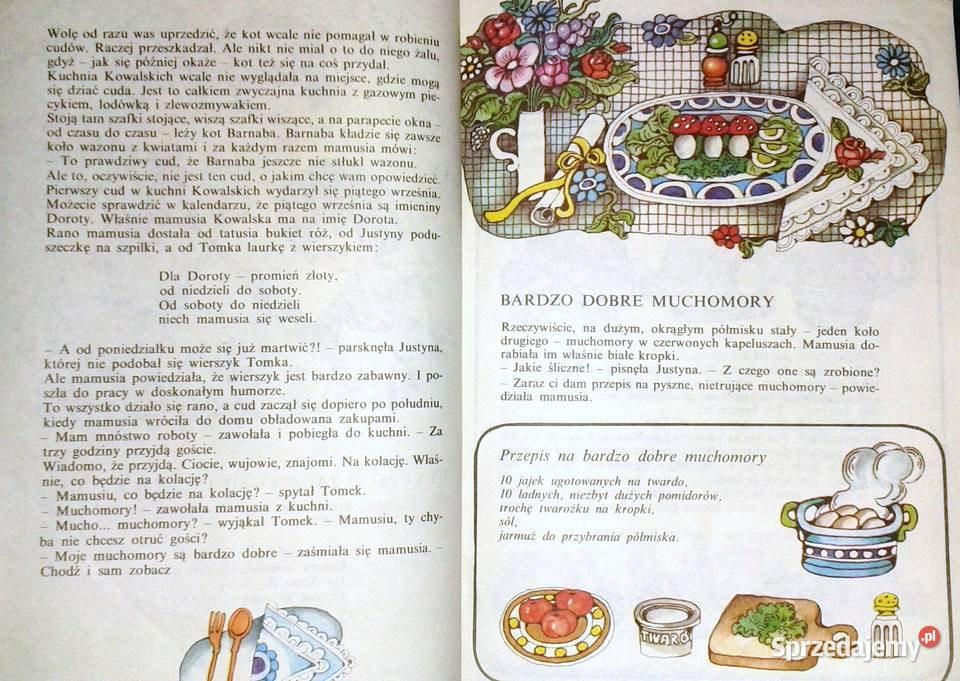 Wolę od razu was uprzedzić, że kot wcale nie pomagał w robieniu
cudów. Raczej przeszkadzał. Ale nikt nie miał o to do niego żalu,
gdyż – jak się później okaże – kot też się na coś przydał.
Kuchnia Kowalskich wcale nie wyglądała na miejsce, gdzie mogą
się dziać cuda. Jest to całkiem zwyczajna kuchnia z gazowym pie-
cykiem, lodówką i zlewozmywakiem.
Stoją tam szafki stojące, wiszą szafki wiszące, a na parapecie okna –
od czasu do czasu – leży kot Barnaba. Barnaba kładzie się zawsze
koło wazonu z kwiatami i za każdym razem mamusia mówi:
– To prawdziwy cud, że Barnaba jeszcze nie stłukł wazonu.
Ale to, oczywiście, nie jest ten cud, o jakim chcę wam opowiedzieć.
Pierwszy cud w kuchni Kowalskich wydarzył się piątego września.
Możecie sprawdzić w kalendarzu, że piątego września są imieniny
Doroty. Właśnie mamusia Kowalska ma na imię Dorota.
Rano mamusia dostała od tatusia bukiet róż, od Justyny podu-
szeczkę na szpilki, a od Tomka laurkę z wierszykiem:
Dla Doroty – promień złoty,
od niedzieli do soboty.
Od soboty do niedzieli
niech mamusia się weseli.
– A od poniedziałku może się już martwić?! – parsknęła Justyna,
której nie podobał się wierszyk Tomka.
Ale mamusia powiedziała, że wierszyk jest bardzo zabawny. I po-
szła do pracy w doskonałym humorze.
To wszystko działo się rano, a cud zaczął się dopiero po południu,
kiedy mamusia wróciła do domu obładowana zakupami.
– Mam mnóstwo roboty – zawołała i pobiegła do kuchni. – Za
trzy godziny przyjdą goście.
Wiadomo, że przyjdą. Ciocie, wujowie, znajomi. Na kolację. Właś-
nie, co będzie na kolację?
– Mamusiu, co będzie na kolację? – spytał Tomek.
– Muchomory! – zawołała mamusia z kuchni.
– Mucho... muchomory? – wyjąkał Tomek. – Mamusiu, ty chy-
ba nie chcesz otruć gości?
– Moje muchomory są bardzo dobre – zaśmiała się mamusia. –
Chodź i sam zobacz
BARDZO DOBRE MUCHOMORY
Rzeczywiście, na dużym, okrągłym półmisku stały – jeden koło
drugiego – muchomory w czerwonych kapeluszach. Mamusia do-
rabiała im właśnie białe kropki.
– Jakie śliczne! – pisnęła Justyna. – Z czego one są zrobione?
– Zaraz ci dam przepis na pyszne, nietrujące muchomory – powie-
działa mamusia.
Przepis na bardzo dobre muchomory
10 jajek ugotowanych na twardo,
10 ładnych, niezbyt dużych pomidorów,
trochę twarożku na kropki,
sól,
jarmuż do przybrania półmiska.
TWARÓ
Sprzedajemy.pl